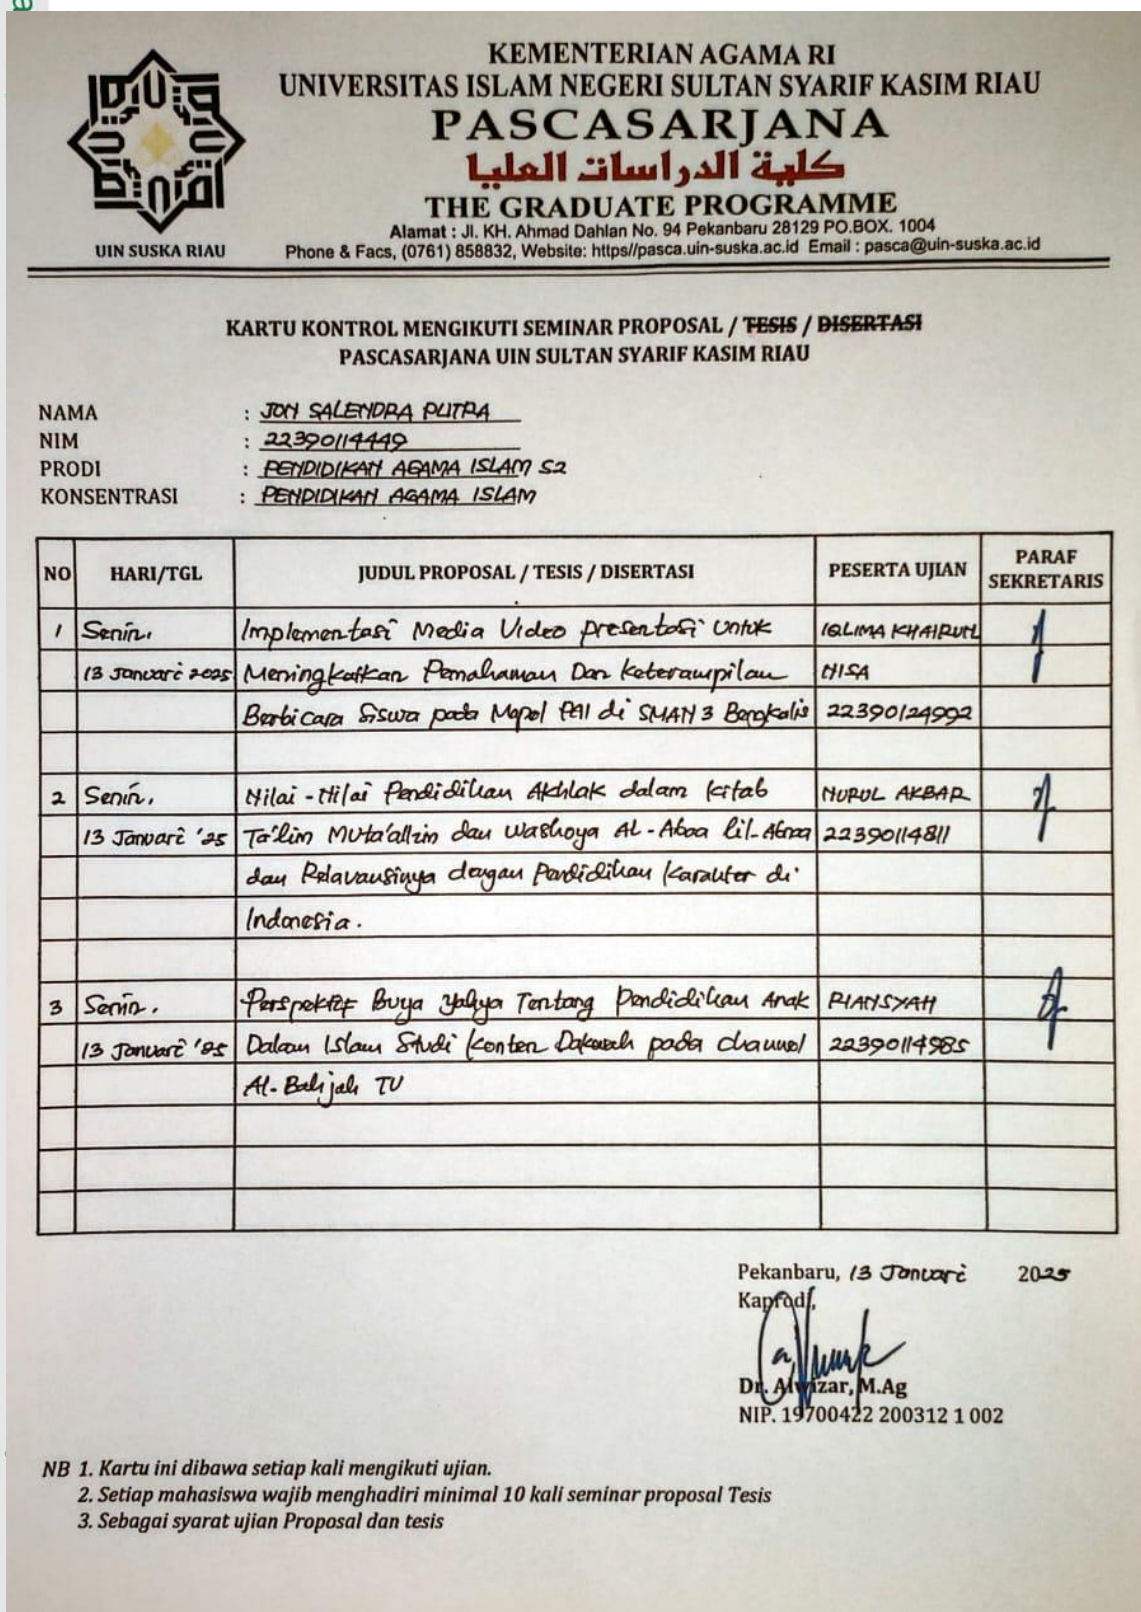 KEMENTERIAN AGAMA RI
UNIVERSITAS ISLAM NEGERI SULTAN SYARIF KASIM RIAU
PASCASARJANA
كلية الدراسات العليا
THE GRADUATE PROGRAMME
Alamat : Jl. KH. Ahmad Dahlan No. 94 Pekanbaru 28129 PO.BOX. 1004
Phone & Facs, (0761) 858832, Website: https//pasca.uin-suska.ac.id Email : pasca@uin-suska.ac.id
UIN SUSKA RIAU
KARTU KONTROL MENGIKUTI SEMINAR PROPOSAL / TESIS / DISERTASI
PASCASARJANA UIN SULTAN SYARIF KASIM RIAU
NAMA : JON SALENDRA PUTRA
NIM : 22390114449
PRODI : PENDIDIKAN AGAMA ISLAM S2
KONSENTRASI : PENDIDIKAN AGAMA ISLAM
NO HARI/TGL JUDUL PROPOSAL / TESIS / DISERTASI PESERTA UJIAN PARAF SEKRETARIS
1 Senin, Implementasi Media Video presentasi untuk IQLIMA KHAIRUN
13 Januari 2025 Meningkatkan Pemahaman Dan keterampilan NISA
Berbicara Siswa pada Mapel PAI di SMAN 3 Bengkalis 22390124992
2 Senin, Nilai - Nilai Pendidikan Akhlak dalam kitab NURUL AKBAR
13 Januari '25 Ta'lim Muta'allim dan Washoya AL - Abaa lil - Abnaa 22390114811
dan Relavansinya dengan Pendidikan Karakter di
Indonesia.
3 Senin. Perspektif Buya Yahya Tentang Pendidikan Anak RIANSYAH
13 Januari '25 Dalam Islam Studi Konten Dakwah pada channel 22390114985
Al- Bahjah TV
Pekanbaru, 13 Januari 2025
Kaprodi,
Dr. Alwizar, M.Ag
NIP. 19700422 200312 1 002
NB 1. Kartu ini dibawa setiap kali mengikuti ujian.
2. Setiap mahasiswa wajib menghadiri minimal 10 kali seminar proposal Tesis
3. Sebagai syarat ujian Proposal dan tesis